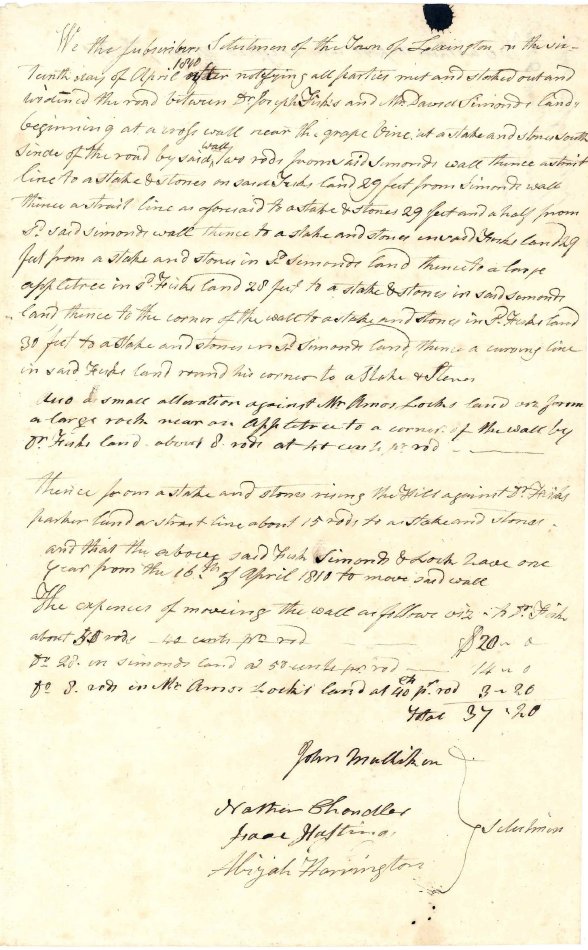 We the subscribers Selectmen of the Town of Lexington on the six-
teenth day of April 1810 after notifying all parties met and staked out and
widened the road between Dr Joseph Fisks and Mr David Simonds land
beginning at a cross wall near the grape vine at a stake and stones south
side of the road by said wall two rods from said Simonds wall thence a strait
line to a stake & stones on said Fisks land 29 feet from Simonds wall
thence a strait line as aforesaid to a stake & stones 29 feet and a half from
Sd said Simonds wall thence to a stake and stones in said Fisks land 29
feet from a stake and stones in Sd Simonds land thence to a large
appletree in Sd Fisks land 28 feet to a stake & stones in said Simonds
land thence to the corner of the wall to a stake and stones in Sd Fisks land
30 feet to a stake and stones in Sd Simonds land, thence a curving line
in said Fisks land round his corner to a stake & Stones
also a small alteration against Mr Amos Locks land viz from
a large rock near an appletree to a corner of the wall by
Dr Fisks land about 8 rods at 40 cents pr rod
thence from a stake and stones rising the Hill against Dr Fisks
parker land a strait line about 15 rods to a stake and stones
and that the above said Fisk Simonds & Lock have one
year from the 16th of April 1810 to move said wall
The expences of moveing the wall as follows viz - to Dr Fisks
about 50 rods - 40 cents pr rod $20 - 0
Do 28 in Simonds land at 50 cents pr rod 14 - 0
Do 8 rods in Mr Amos Lock's land at 40 cts pr rod 3 - 20
Total 37 - 20
John Mulliken
Nathan Chandler
Isaac Hastings
Selectmen
Abijah Harrington